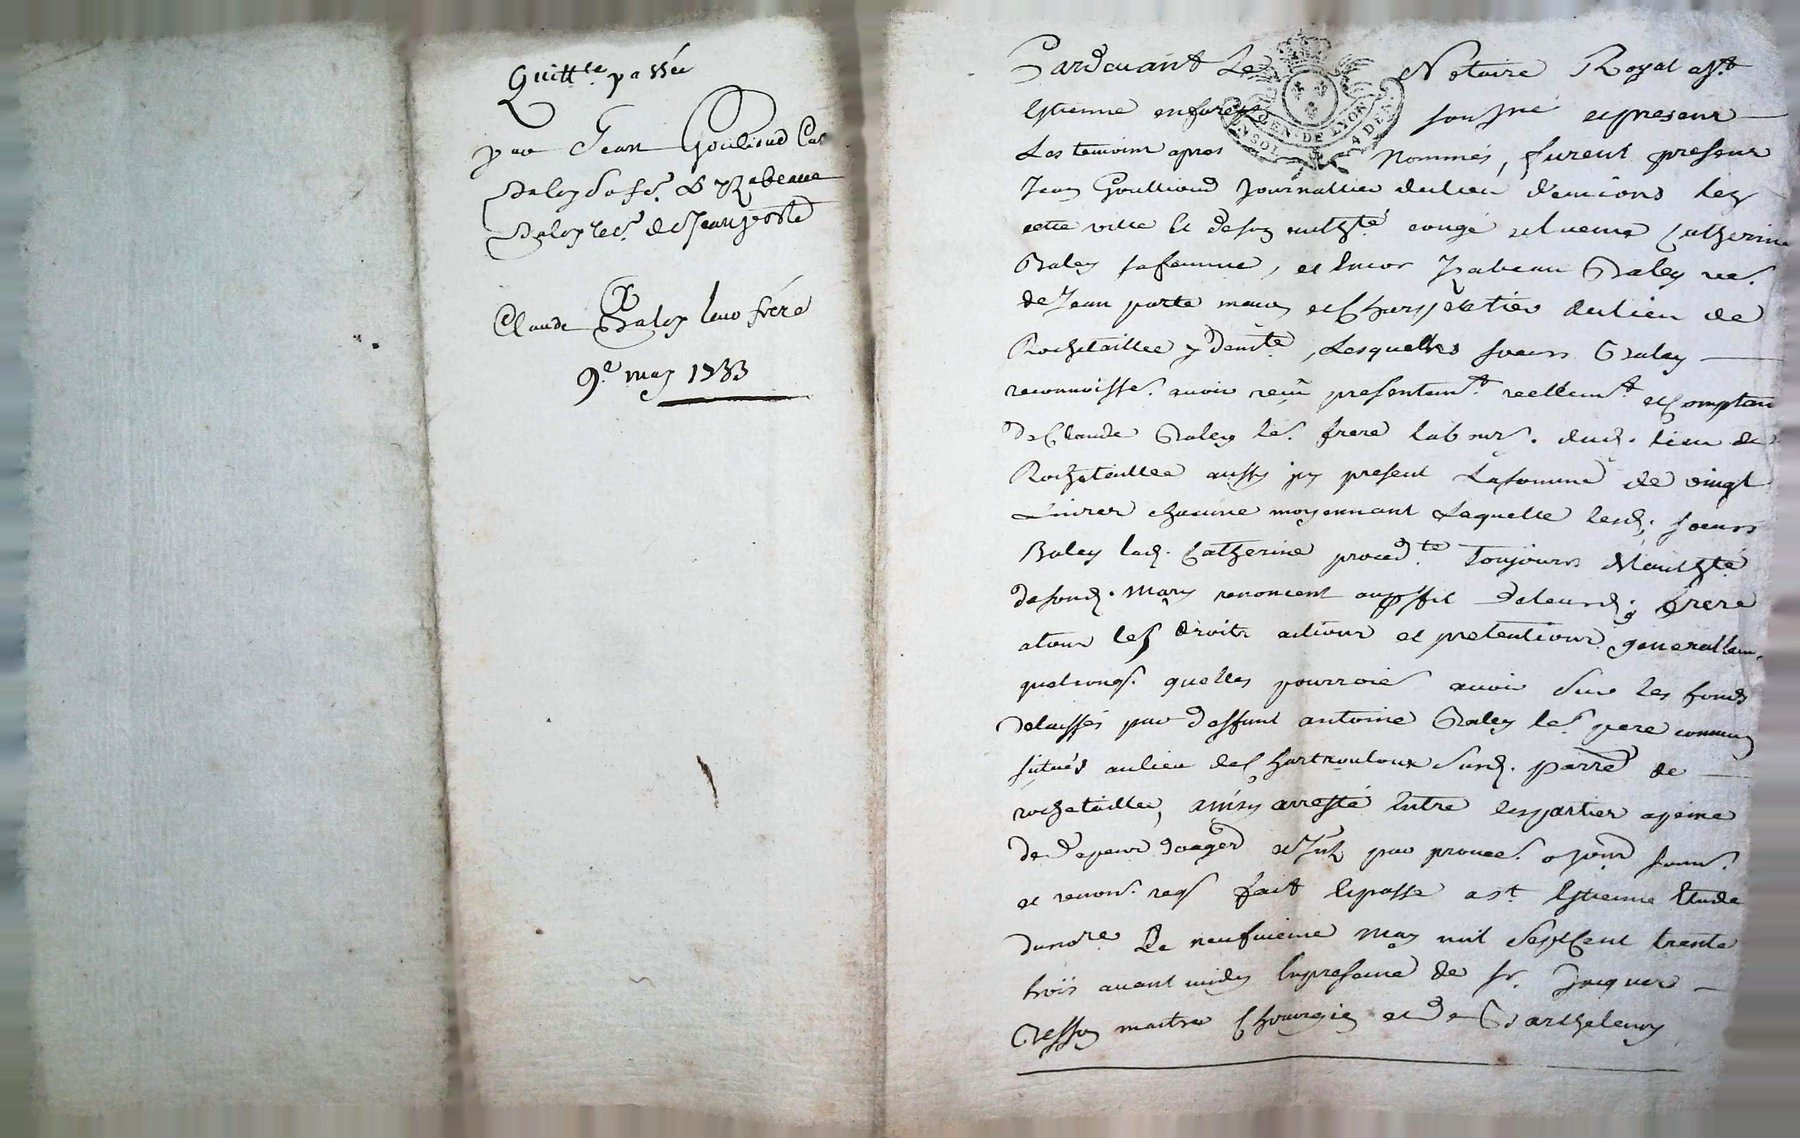 Quitt.ce passée
par Jean Goulioud Cat
Baley sa fe. & Yzabeaue
Baley vev. de Jean porte
a
Claude Baley leur frere
9.e may 1733
Pardevant Le Notaire Royal a St
Estienne en forest soussigné et presens
Les temoins apres nommés, furent presens
Jean Goullioud Journallier du lieu
cette ville le de son authté congé et licence Catherine
Baley sa femme, et encor Yzabeau Baley vev.
de Jean porte marchand charpentier du lieu de
Rochetaillee y demte, Lesquelles soeurs Baley
reconnoisse. avoir reçu presentemt. reellemt. et comptan
de Claude Baley le. frere labour. dud. lieu de
Rochetaillee aussy icy present La somme de vingt
Livres chacune moyennant Laquelle lesd. soeurs
Baley lad. Catherine proced.te Toujours de l'authté
de sond. Mary renoncent au proffit de leurd. frere
a tous les droits actions et pretentions generallem.
quelconq. quelles pourroie avoir sur les fonds
delaissés par deffunt antoine Baley le. pere commun
situés au lieu de sur d. parre de
rochetaillee, ainsy arresté Entre les parties a peine
de depens domages
et renon. req. fait et passé a St Estienne Etude
du nore Le neufvieme May mil sept Cent trente
trois avant midy En presence de sr. Jacques
Besson maitre Chirurgien et de Barthelemy
GEN. DE LYON